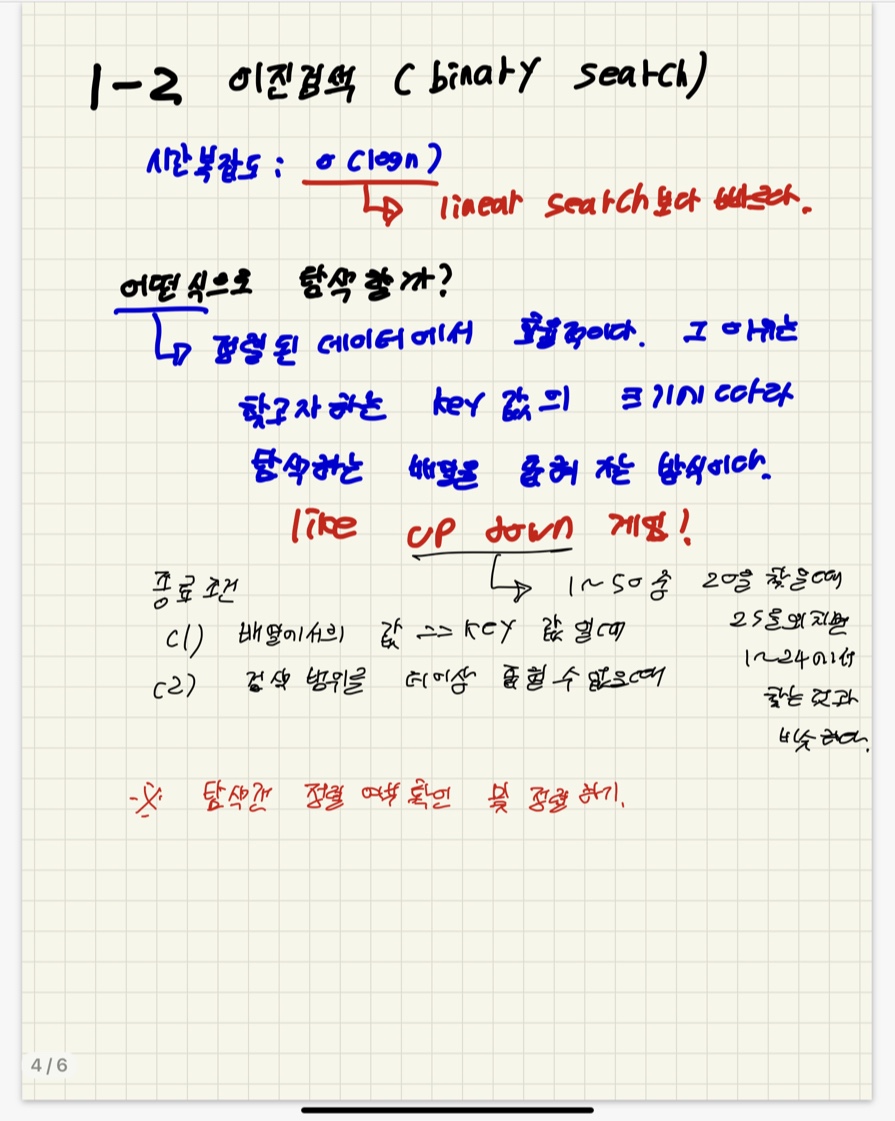 1-2 이진검색 (binary search)
시간복잡도: o(logn)
linear search보다 빠르다.
어떤 식으로 탐색할까?
정렬된 데이터에서 효율적이다. 그 이유는
찾고자하는 key 값의 크기에 따라
탐색하는 배열을 좁혀 가는 방식이다.
like up down 게임!
1~50 중 20을 찾을때
25를 외치면
1~24에서
찾는 것과
비슷하다.
종료조건
(1) 배열에서의 값 == key 값 일때
(2) 검색 범위를 더이상 좁힐 수 없을때
※ 탐색전 정렬 여부 확인 및 정렬하기.
4/6